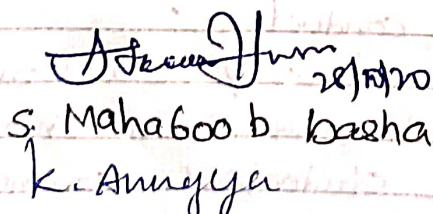 28/10/20
S. Mahaboob basha
K. Anugya